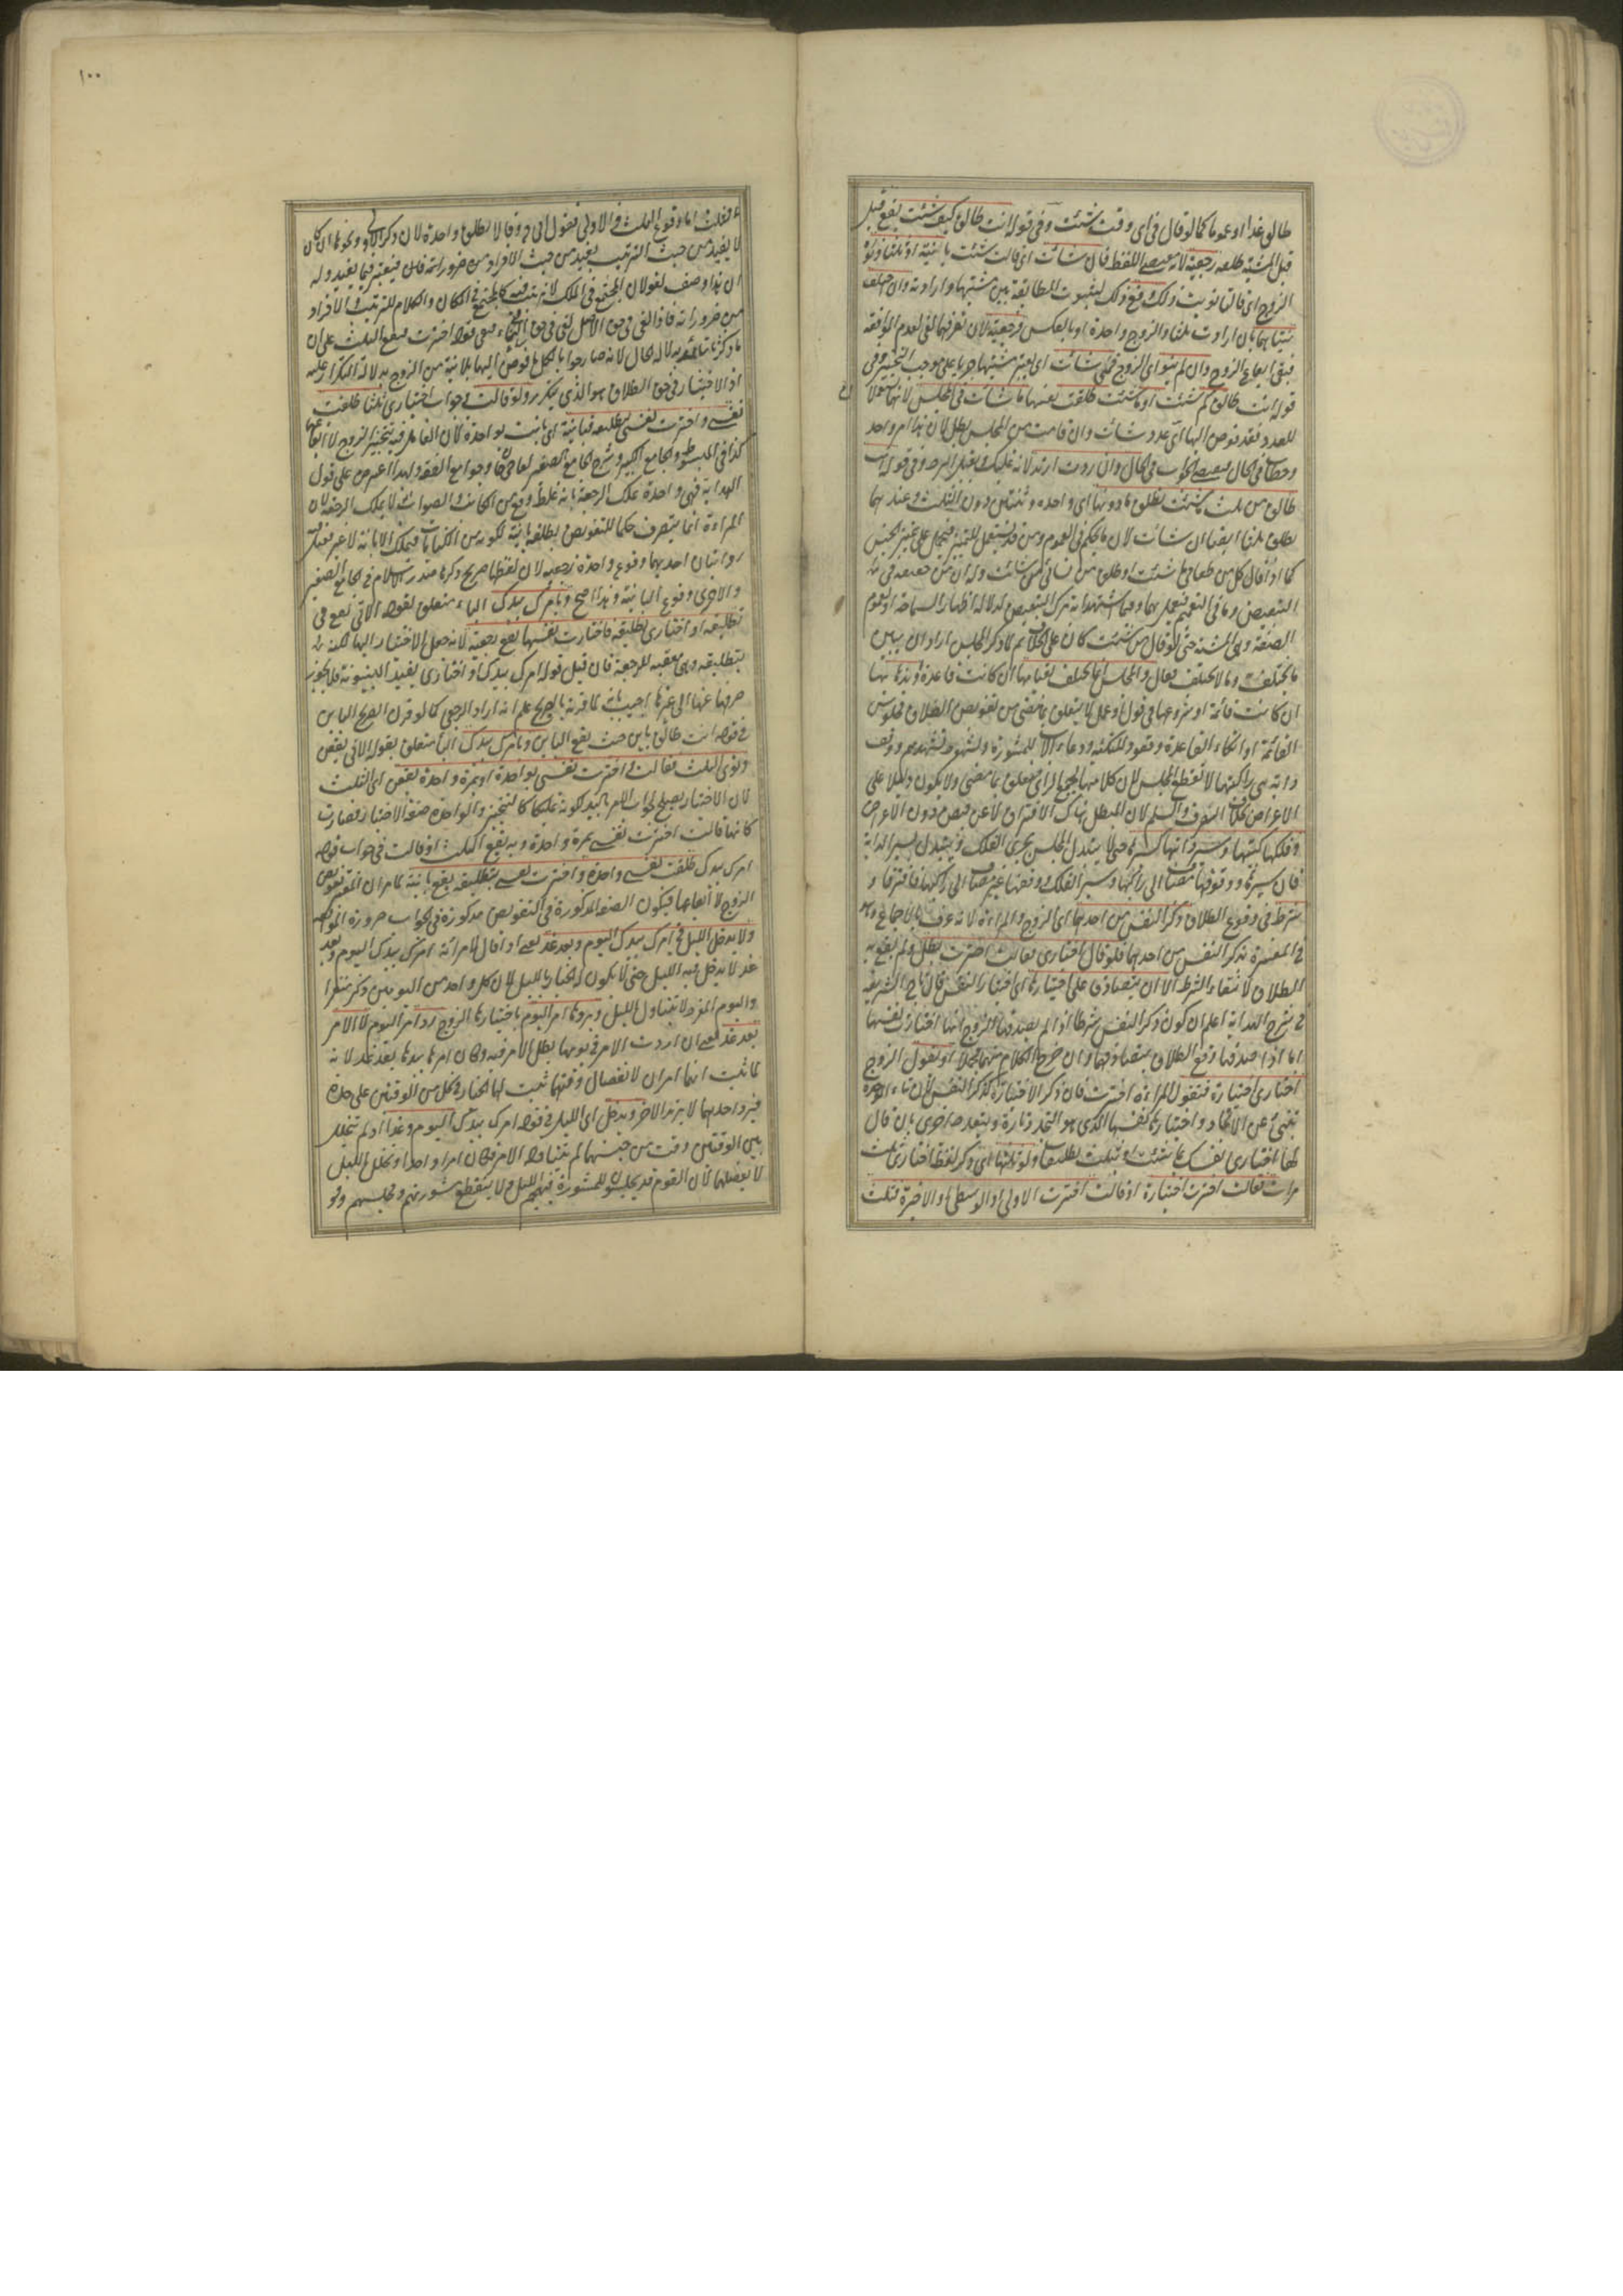 طالق غدا او عموما كما لو قال فى اى وقت شئت وفى قوله انت طالق كيف شئت يقع قبل
قبل المشية طلقة رجعية لانه اللفظ فان شاءت اى قالت شئت باينة او ثلثا ونواه
الزوج اى قال نويت ذلك وقع ذلك لثبوت المطابقة بين مشيتها وارادته وان اختلف
نيتاهما بان ارادت ثلثا والزوج واحدة او بالعكس فرجعية لان تصرفها لغى لعدم الموافقة
فبقى ايقاع الزوج وان لم ينو اى الزوج فكما شاءت اى يعتبر مشيتها جريا على موجب التخيير وفى
قوله انت طالق كم شئت او ما شئت طلقت نفسها ما شاءت فى المجلس لانهما
للعدد فقد فوض اليها اى عدد شاءت وان قامت من المجلس بطل لان هذا امر واحد
وخطاب فى الحال الجواب فى الحال وان ردت ارتد لانه تمليك فيقبل الرد وفى قوله انت
طالق من ثلث ما شئت تطلق ما دونها اى واحدة وثنتين دون الثلث وعندهما
تطلق ثلثا ايضا ان شاءت لان ما محكم فى العموم ومن قد يستعمل للتمييز فيحمل على تمييز الجنس
كما اذا قال كل من طعامى ما شئت او طلق من نسائى من شاءت وله ان من حقيقة فى
التبعيض وما فى التعميم فيعمل بهما وفيما استشهدا به ترك التبعيض لدلالة اظهار السماحة او لعموم
الصفة وهى المشية حتى لو قال من شئت كان على الخلاف ثم لما ذكر المجلس اراد ان يبين
ما يختلف وما لا يختلف فقال والمجلس انما يختلف بقيامها ان كانت قاعدة وذهابها
ان كانت قائمة او شروعها فى قول او عمل لا يتعلق بما مضى من تفويض الطلاق فجلوس
القائمة او اتكاء القاعدة وقعود المتكئة ودعاء الاب للمشورة وشهود تشهدهم ووقف
دابة هى راكبتها لا تقطع المجلس لان كلا منها لجمع الراى فيتعلق بما مضى ولا يكون دليلا على
الاعراض بخلاف الصرف والسلم لان المبطل هناك الافتراق لا عن قبض دون الاعراض
وفلكها كبيتها وسير دابتها كسيرها حتى لا يتبدل المجلس بجرى الفلك ويتبدل بسير الدابة
فان سيرها ووقوفها مضاف الى راكبها وسير الفلك ووقفها غير مضاف الى راكبها فافترقا و
شرط فى وقوع الطلاق ذكر النفس من احدهما اى الزوج والمراءة لانه عرف بالاجماع وهو
فى المفسرة بذكر النفس من احدهما فلو قال اختارى فقالت اخترت بطل ولم يقع به
الطلاق لانتفاء الشرط الا ان يتصادقا على اختيارها اى اختيار النفس قال تاج الشريعة
فى شرح الهداية اعلم ان كون ذكر النفس شرطا اذا لم يصدقها الزوج انها اختارت نفسها
اما اذا صدقها وقع الطلاق بتصادقهما وان خرج الكلام منهما مجملا او يقول الزوج
اختارى اختيارة فتقول المراءة اخترت فان ذكر الاختيارة كذكر النفس لان تاء الوحدة
تنبئ عن الاتحاد واختيارها نفسها الذى هو اتحد تارة ويتعدد اخرى بان قال
لها اختارى نفسك بما شئت او بثلث تطليقات ولو ثلثها اى ذكر لفظ اختارى ثلث
مرات فقالت اخترت اختيارة او قالت اخترت الاولى او الوسطى او الاخيرة فثلث
١٠٠
لا يفيد من حيث الترتيب يفيد من حيث الافراد من ضروراته فان فيعتبر فيما يفيد وله
ان هذا وصف لغو لان المجتمع فى الملك لا ترتيب فيه كالمجتمع فى المكان والكلام للترتيب والافراد
من ضروراته فاذا لغى فى حق الاصل لغى فى حق البناء فبقى قوله اخترت فيقع الثلث على ان
اذ الاختيار فى حق الطلاق هو الذى يتكرر ولو قالت فى جواب اختارى ثلثا طلقت
نفسى او اخترت نفسى بتطليقة فباينة اى بانت بواحدة لان العامل فيه تخيير الزوج لا ايقاعها
كذا فى المبسوط والجامع الكبير وشرح الجامع الصغير لقاضى خان وجوامع الفقه ولهذا اعترض على قول
الهداية فهى واحدة يملك الرجعة بانه غلط وقع من الكاتب والصواب لا يملك الرجعة لان
المراءة انما تتصرف حكما للتفويض بطلقة باينة لكونه من الكنايات فيملك الابانة لا غير فقيل
روايتان احديهما وقوع واحدة رجعية لان لفظها صريح ذكره صدر الاسلام فى الجامع الصغير
والاخرى وقوع الباينة وهذا اصح وبامرك بيدك الباء متعلق بقوله الاتى يقع فى
تطليقة او اختارى تطليقة فاختارت نفسها يقع رجعية لانه جعل الاختيار اليها لكنه
بتطليقة وهى معقبة للرجعة فان قيل قوله امرك بيدك او اختارى يفيد البينونة فلا يجوز
صرفها عنها الى غيرها اجيب بانه لما قرنه بالصريح علم انه اراد الرجعى كما لو قرن الصريح بالباين
فى قوله انت طالق باين حيث يقع الباين وبامرك بيدك الباء متعلق بقوله الاتى يقعن
ونوى الثلث فقالت اخترت نفسى بواحدة او بمرة واحدة يقعن اى الثلث
لان الاختيار يصلح لجواب الامر باليد لكونه تمليكا كالتخيير والواحدة صفة الاختيار فصارت
كانها قالت اخترت نفسى بمرة واحدة وبه يقع الثلث او قالت فى جواب قوله
امرك بيدك طلقت نفسى واحدة او اخترت نفسى بتطليقة يقع باينة لما مر ان المعتبر تفويض
الزوج لا ايقاعها فيكون الصفة المذكورة فى التفويض مذكورة فى الجواب ضرورة الموافقة
ولا يدخل الليل فى امرك بيدك اليوم وبعد غد يعنى اذا قال لامرأته امرك بيدك اليوم وبعد
غد لا يدخل فيه الليل حتى لا يكون لها الخيار بالليل لان كل واحد من اليومين ذكر منفردا
واليوم المفرد لا يتناول الليل وبردها امر اليوم باختيارها الزوج ارد امر اليوم لا الامر
بعد غد يعنى ان ردت الامر فى يومها بطل الامر فيه وكان امرها بيدها بعد غد لانه
لما ثبت انهما امران لانفصال وقتهما ثبت لها الخيار فى كل من الوقتين على حدة
فبرد احدهما لا يرتد الاخر ويدخل اى الليل فى قوله امرك بيدك اليوم وغدا اذ لم يتخلل
بين الوقتين وقت من جنسهما لم يتناوله الامر فكان امرا واحدا وتخلل الليل
لا يفصلهما لان القوم قد يجلسون للمشورة فيهجم الليل ولا ينقطع مشورتهم ومجلسهم ولو